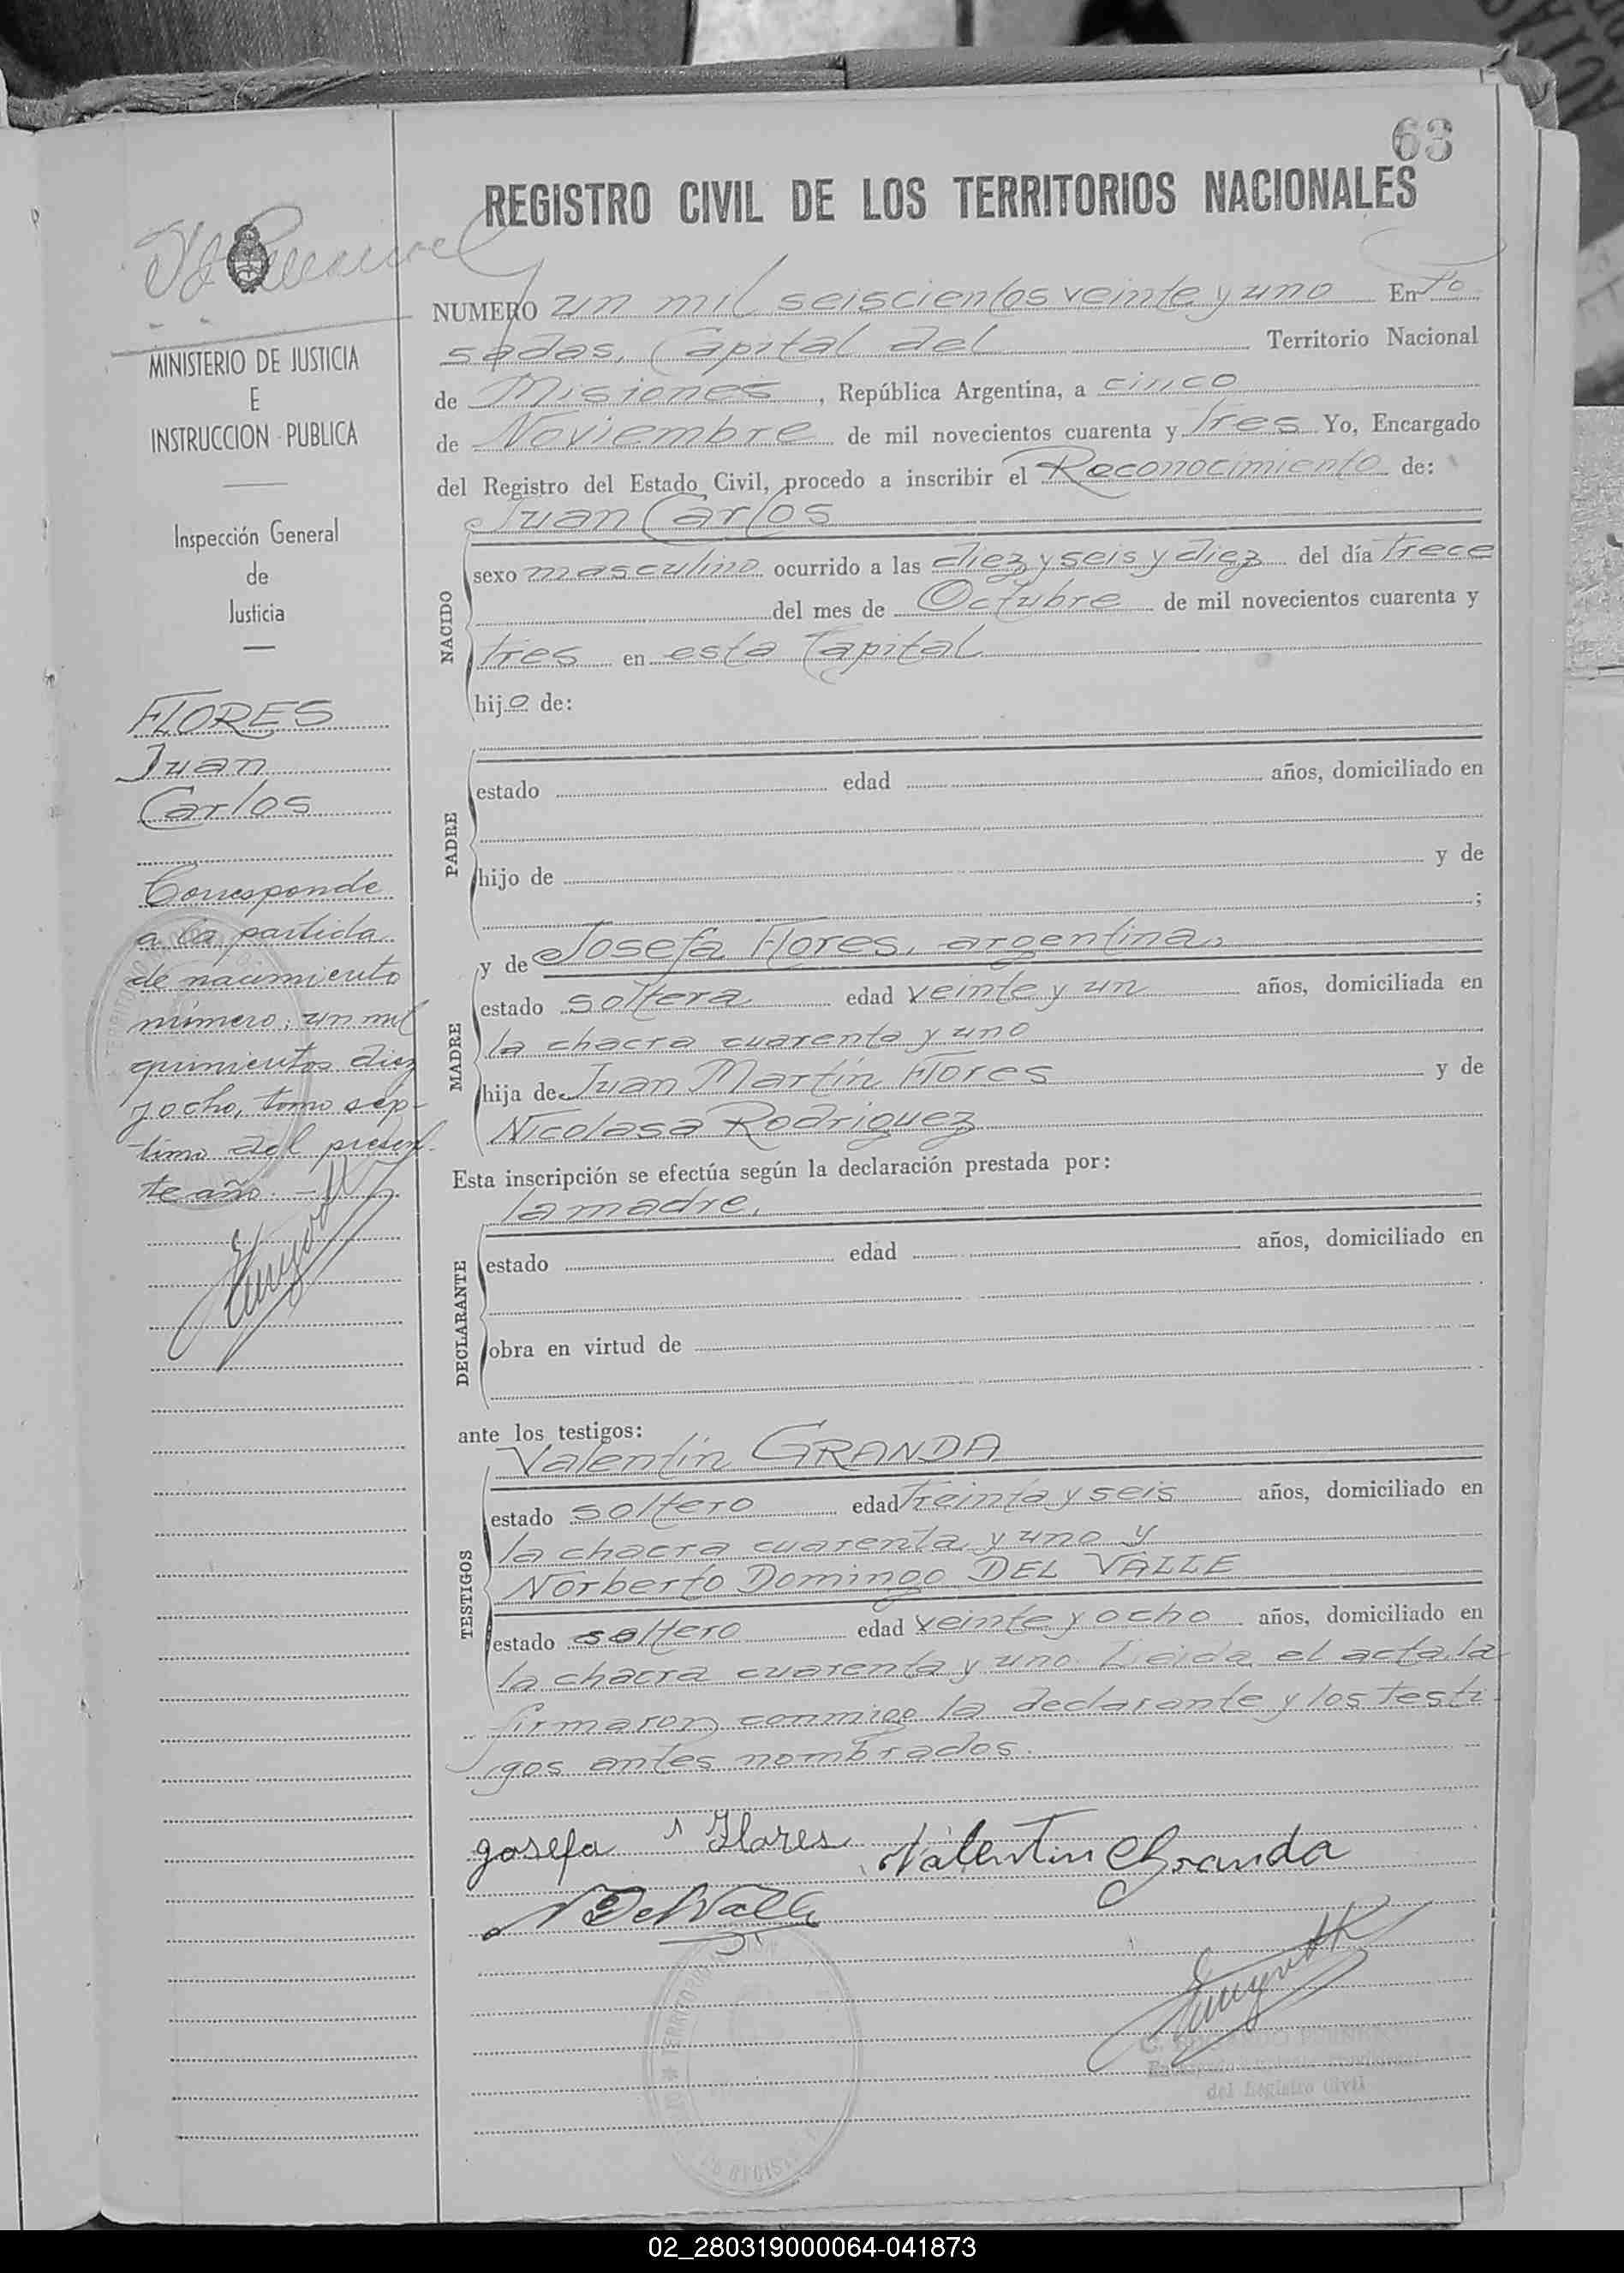 63
REGISTRO CIVIL DE LOS TERRITORIOS NACIONALES
MINISTERIO DE JUSTICIA
E
INSTRUCCION PUBLICA
Inspección General
de
Justicia
FLORES
Juan
Carlos
Corresponde
a la partida
de nacimiento
número: un mil
quinientos diez
y ocho, tomo sép-
timo del presen-
te año.-
NUMERO un mil seiscientos veinte y uno En Po
sadas, Capital del Territorio Nacional
de Misiones, República Argentina, a cinco
de Noviembre de mil novecientos cuarenta y tres Yo, Encargado
del Registro del Estado Civil, procedo a inscribir el Reconocimiento de:
Juan Carlos
NACIDO
sexo masculino ocurrido a las diez y seis y diez del día trece
del mes de Octubre de mil novecientos cuarenta y
tres en esta Capital
hijo de:
PADRE
estado edad años, domiciliado en
hijo de y de
;
MADRE
y de Josefa Flores, argentina,
estado soltera edad veinte y un años, domiciliada en
la chacra cuarenta y uno
hija de Juan Martín Flores y de
Nicolasa Rodriguez
Esta inscripción se efectúa según la declaración prestada por:
la madre.
DECLARANTE
estado edad años, domiciliado en
obra en virtud de
ante los testigos:
Valentín GRANDA
TESTIGOS
estado soltero edad treinta y seis años, domiciliado en
la chacra cuarenta y uno y
Norberto Domingo DEL VALLE
estado soltero edad veinte y ocho años, domiciliado en
la chacra cuarenta y uno. Leida el acta, la
firmaron conmigo la declarante y los testi-
gos antes nombrados.
Josefa Flores Valentin Granda
N D Del Valle
del Registro Civil
02_280319000064-041873